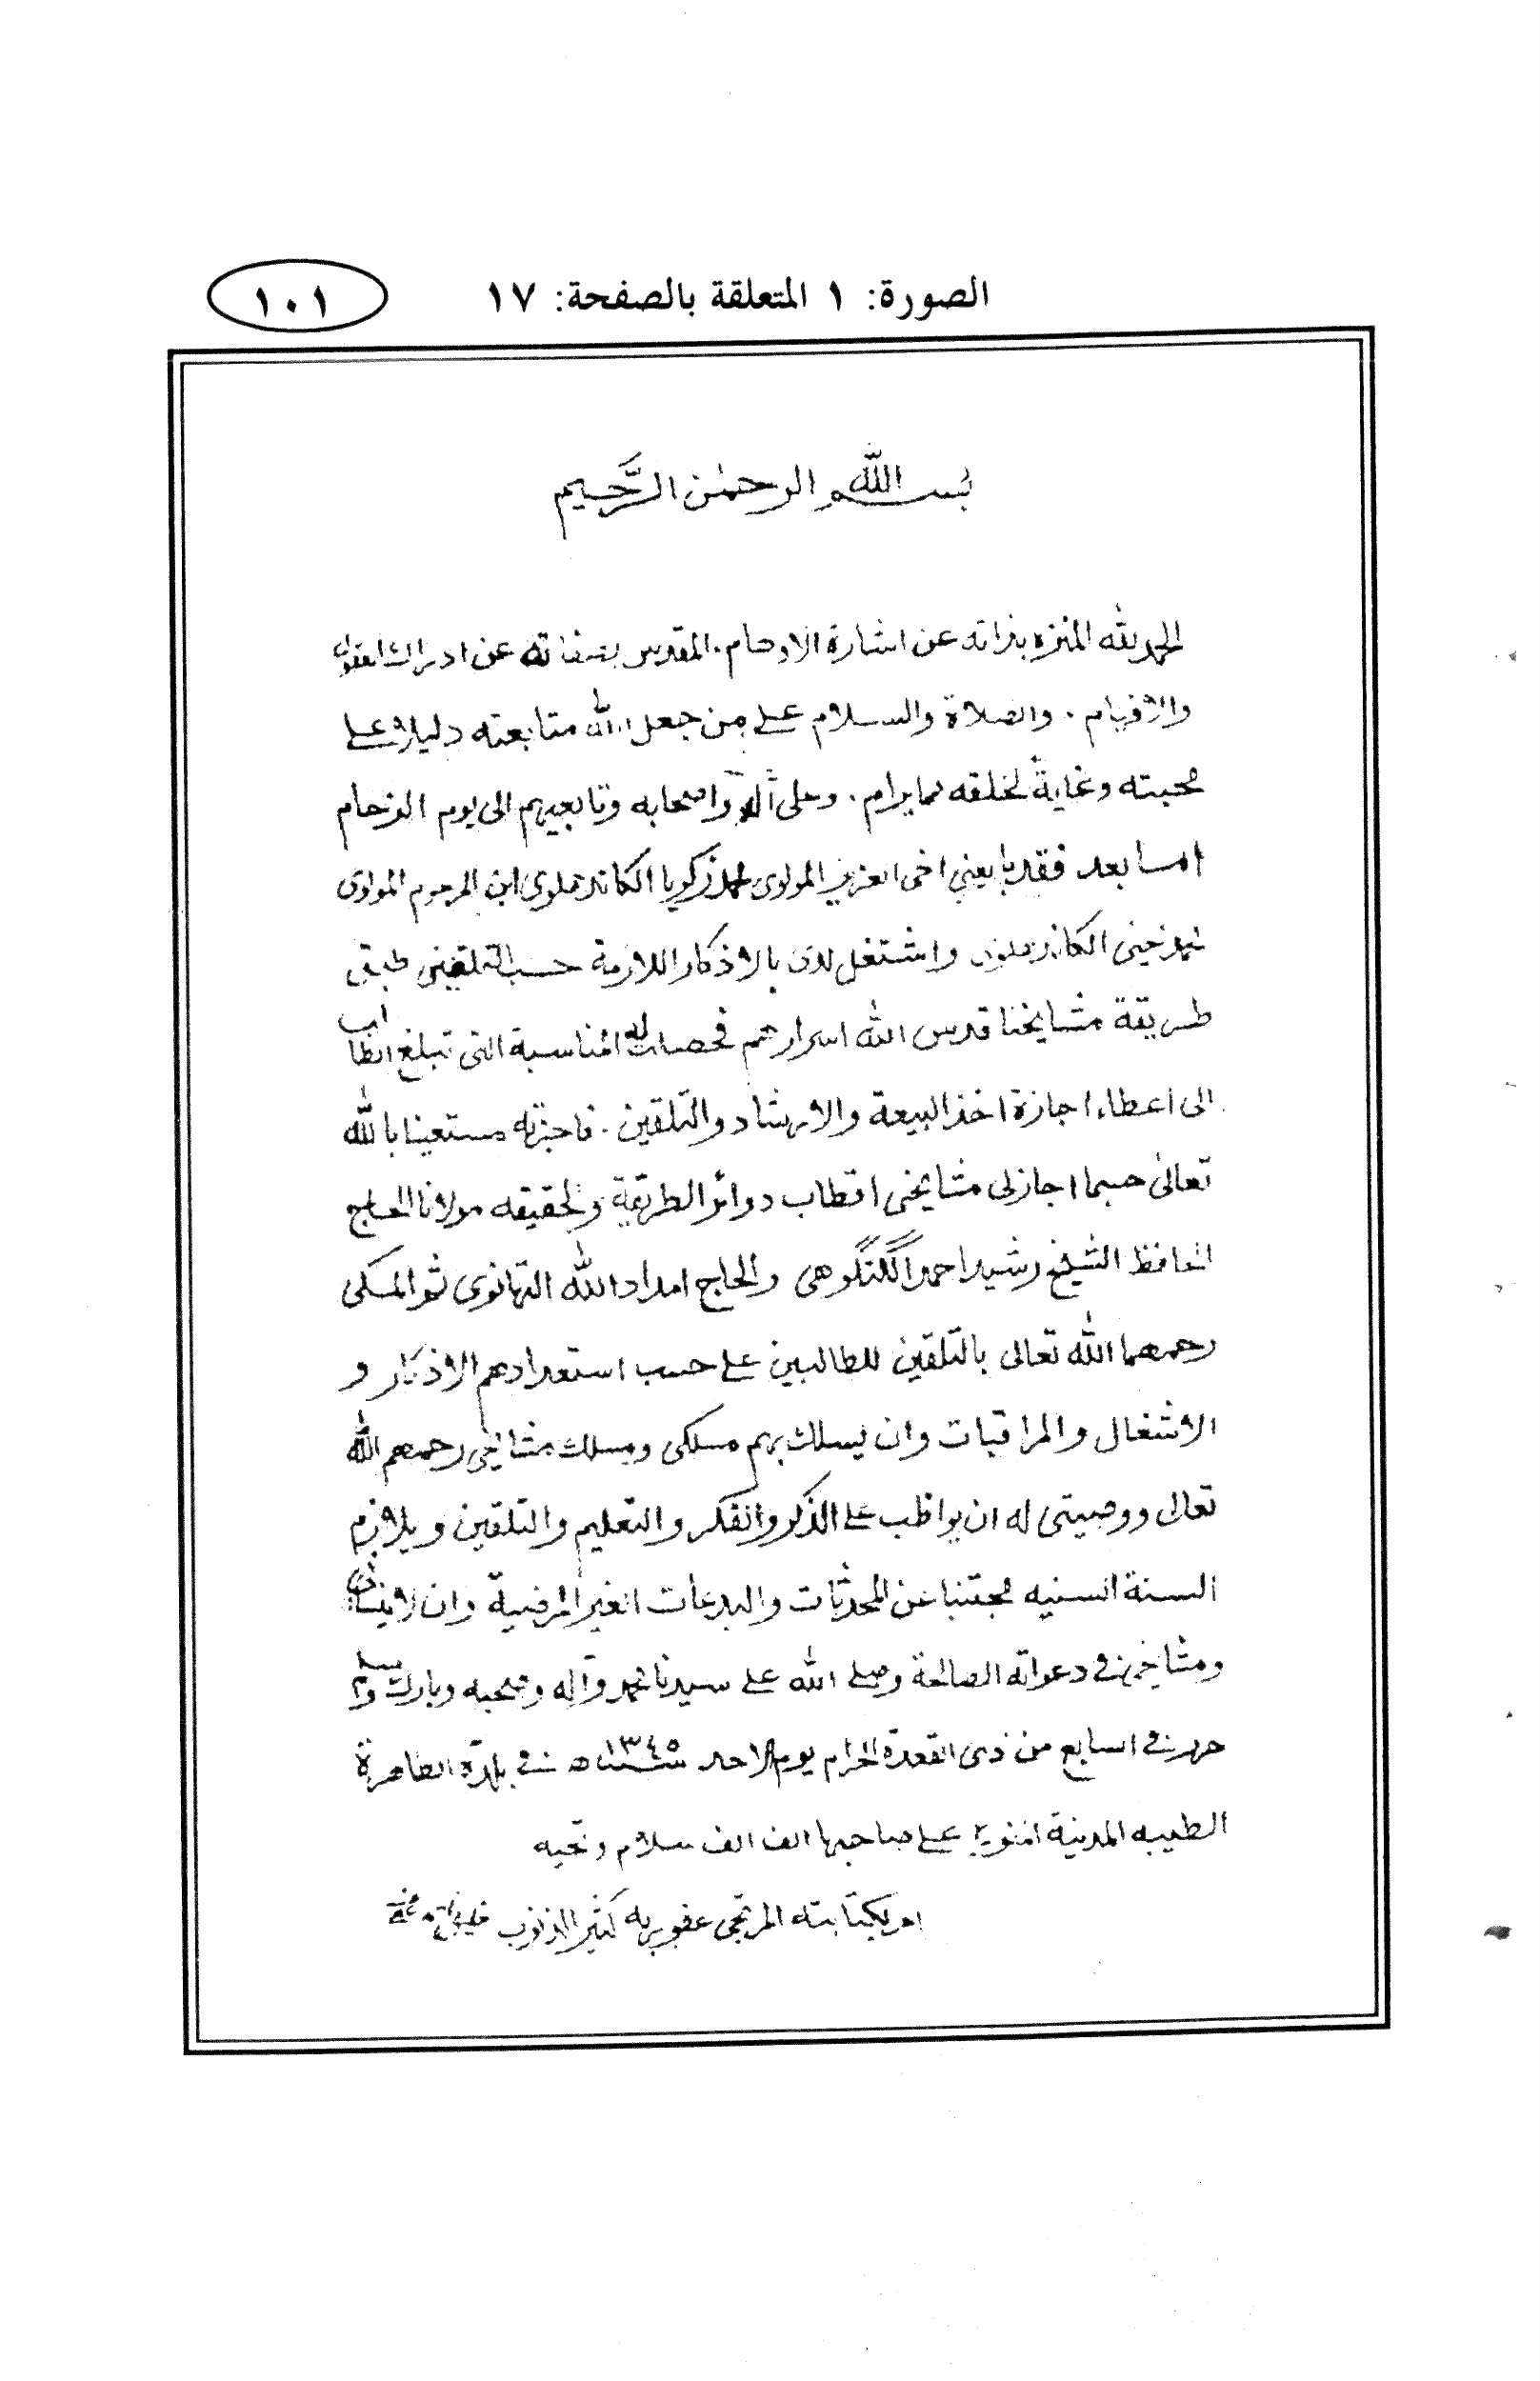 الصورة: ١ المتعلقة بالصفحة: ١٧
١٠١
بسم الله الرحمٰن الرَّحيم
الحمد لله المنزه بذاته عن اشارة الاوهام. المقدس بصفاته عن ادراك العقول
والافهام. والصلاة والسلام على من جعل الله متابعته دليلا على
محبته وغايةً لخلقه لما يرام. وعلى آله واصحابه وتابعيهم الى يوم الزحام
اما بعد فقد بايعني اخى العزيز المولوى محمد زكريا الكاندهلوى ابن المرحوم المولوى
محمد يحيى الكاندهلوى واشتغل لدى بالاذكار اللازمة حسب التلقينى طبق
طريقة مشايخنا قدس الله اسرارهم فحصلت له المناسبة التى تبلغ الطالب
الى اعطاء اجازة اخذ البيعة والارشاد والتلقين. فاجزته مستعينا بالله
تعالىٰ حسبما اجازلى مشايخى اقطاب دوائر الطريقة والحقيقه مولانا الحاج
الحافظ الشيخ رشيد احمد الگنگوهى والحاج امداد الله التهانوى ثم المكى
رحمهما الله تعالى بالتلقين للطالبين على حسب استعدادهم الاذكار و
الاشغال والمراقبات وان يسلك بهم مسلكى ومسلك مشائخى رحمهم الله
تعالى ووصيتى له ان يواظب على الذكر والفكر والتعليم والتلقين ويلازم
السنة السنيه مجتنبا عن المحدثات والبدعات الغير المرضية وان لا ينسانى
ومشايخى فى دعواته الصالحة وصلى الله على سيدنا محمد وآله وصحبه وبارك وسلم
حرر فى السابع من ذى القعدة الحرام يوم الاحد سنة ١٣٤٥ ه فى بلدة الطاهرة
الطيبه المدينة المنورة على صاحبها الف الف سلام وتحيه
امر بكتابته المرتجى عفو ربه كثير الذنوب